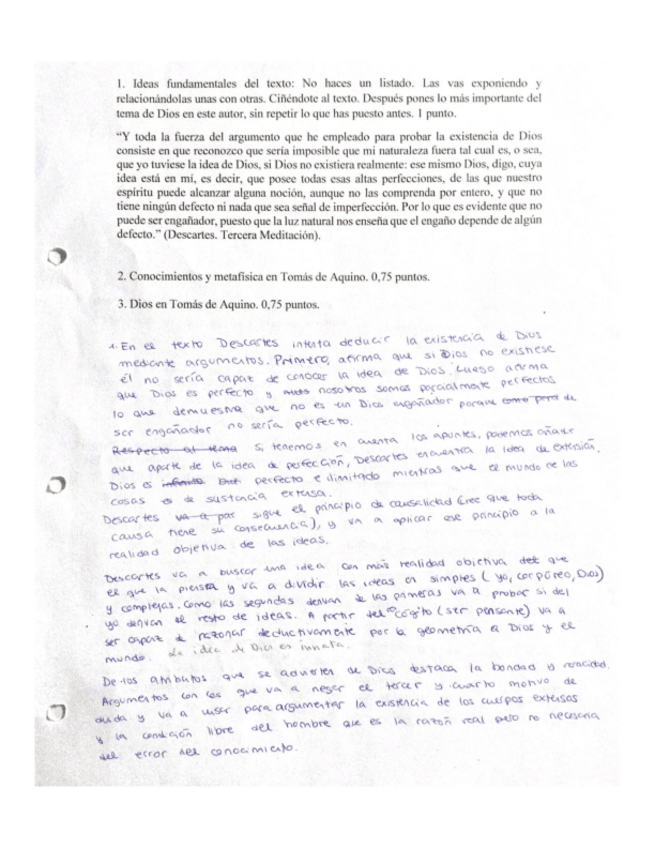 1. Ideas fundamentales del texto: No haces un listado. Las vas exponiendo y
relacionándolas unas con otras. Ciñéndote al texto. Después pones lo más importante del
tema de Dios en este autor, sin repetir lo que has puesto antes. 1 punto.
“Y toda la fuerza del argumento que he empleado para probar la existencia de Dios
consiste en que reconozco que sería imposible que mi naturaleza fuera tal cual es, o sea,
que yo tuviese la idea de Dios, si Dios no existiera realmente: ese mismo Dios, digo, cuya
idea está en mí, es decir, que posee todas esas altas perfecciones, de las que nuestro
espíritu puede alcanzar alguna noción, aunque no las comprenda por entero, y que no
tiene ningún defecto ni nada que sea señal de imperfección. Por lo que es evidente que no
puede ser engañador, puesto que la luz natural nos enseña que el engaño depende de algún
defecto.” (Descartes. Tercera Meditación).
2. Conocimientos y metafísica en Tomás de Aquino. 0,75 puntos.
3. Dios en Tomás de Aquino. 0,75 puntos.
1. En el texto Descartes intenta deducir la existencia de Dios
mediante argumentos. Primero, afirma que si Dios no existiese
él no sería capaz de conocer la idea de Dios. Luego afirma
que Dios es perfecto y nosotros somos parcialmente perfectos
lo que demuestra que no es un Dios engañador porque como para de
ser engañador no sería perfecto.
Respecto al tema si tenemos en cuenta los apuntes, podemos añadir
que aparte de la idea de perfección, Descartes encuentra la idea de extensión.
Dios es infinito perfecto e ilimitado mientras que el mundo de las
cosas es de sustancia extensa.
Descartes va a par sigue el principio de causalidad (cree que toda
causa tiene su consecuencia), y va a aplicar ese principio a la
realidad objetiva de las ideas.
Descartes va a buscar una idea con más realidad objetiva del que
el que la piensa y va a dividir las ideas en simples (yo, corpóreo, Dios)
y complejas. Como las segundas derivan de las primeras va a probar si del
yo derivan el resto de ideas. A partir del cógito (ser pensante) va a
ser capaz de razonar deductivamente por la geometría a Dios y el
mundo. La idea de Dios es innata.
De los atributos que se advierten de Dios destaca la bondad y veracidad.
Argumentos con los que va a negar el tercer y cuarto motivo de
duda y va a usar para argumentar la existencia de los cuerpos extensos
y la condición libre del hombre que es la razón real pero no necesaria
del error del conocimiento.